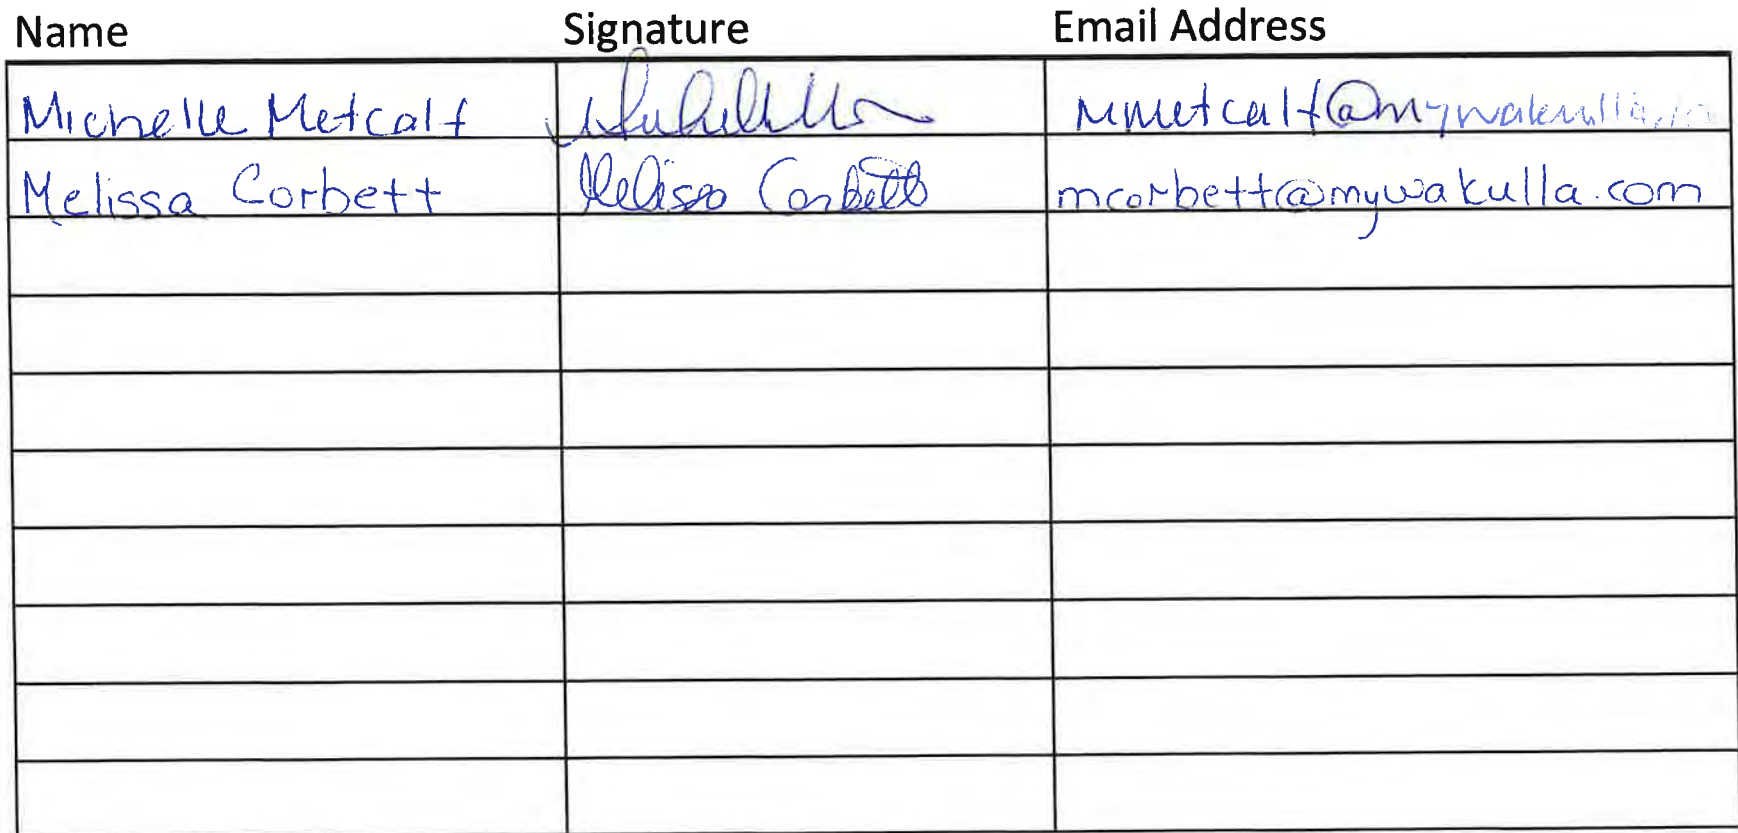 Name Signature Email Address
Michelle Metcalf mmetcalf@mywakulla
Melissa Corbett Melissa Corbett mcorbett@mywakulla.com